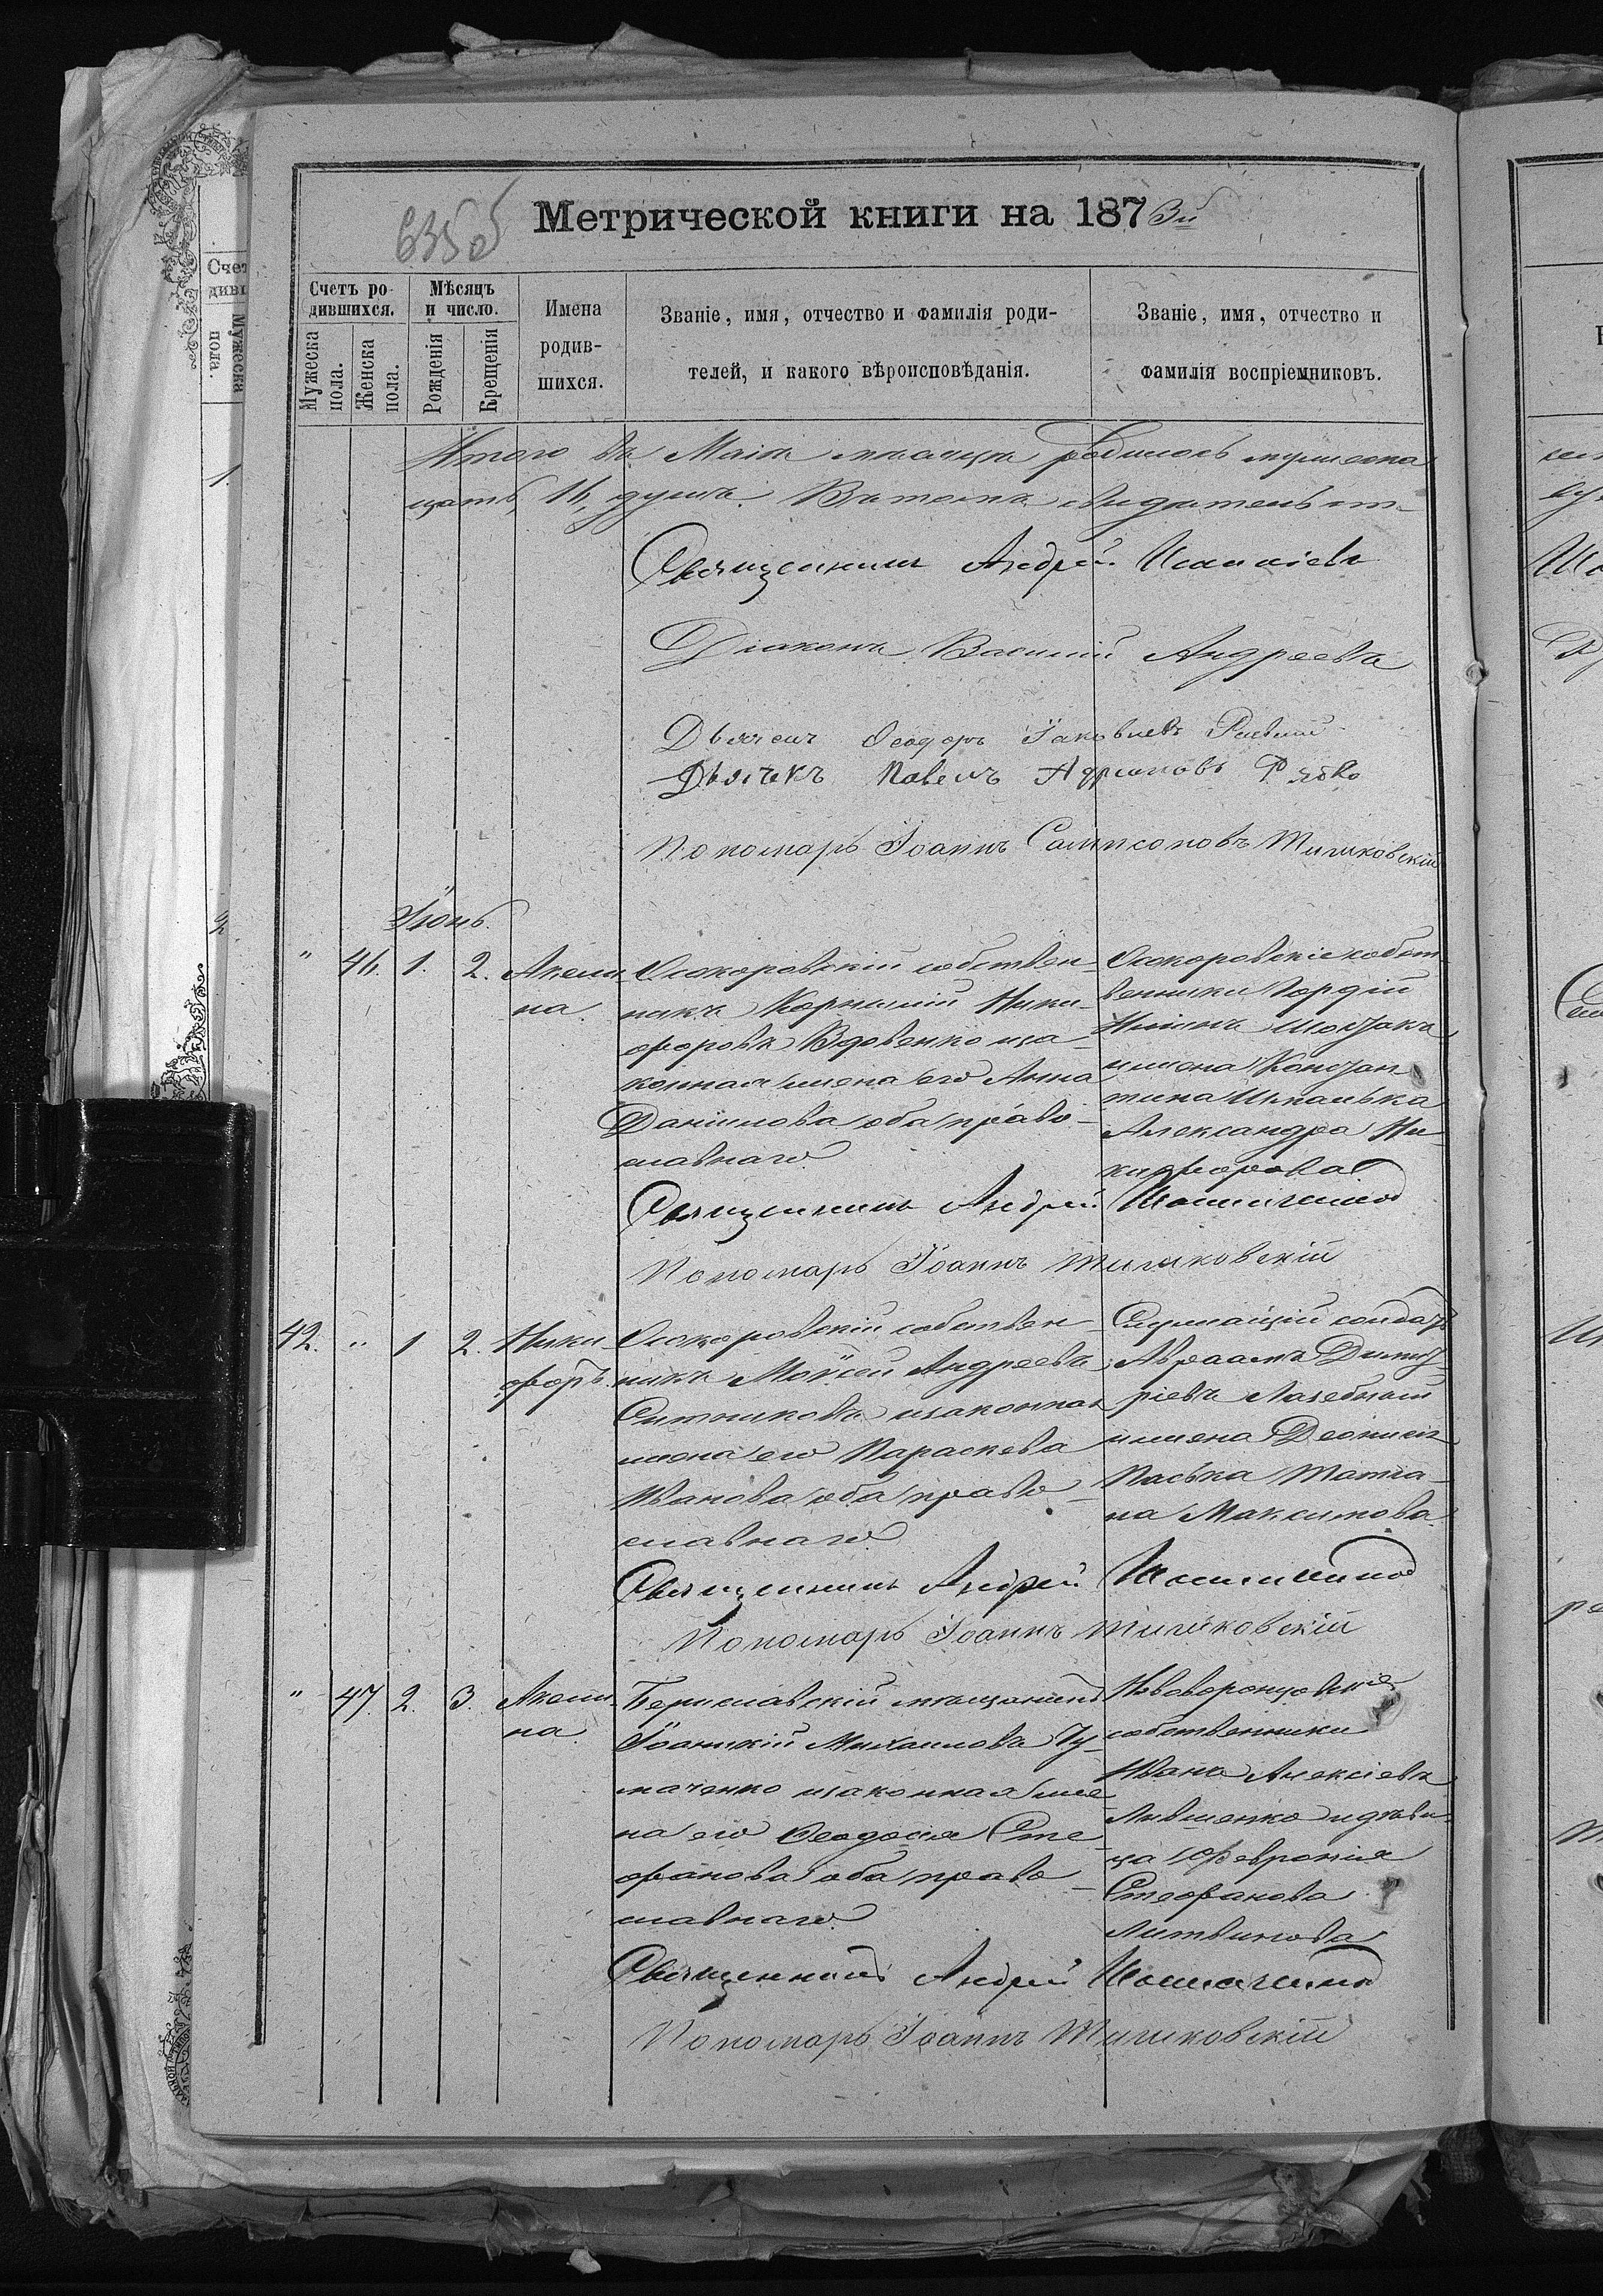 635об
Метрической книги на 1873й
Счетъ ро-
дившихся.
Мужеска пола.
Женска пола.
Мѣсяцъ
и число.
Рожденія
Крещенія
Имена
родив-
шихся.
Званіе, имя, отчество и фамилія роди-
телей, и какого вѣроисповѣданія.
Званіе, имя, отчество и
фамилія воспріемниковъ.
Итого въ Маіѣ мѣсяцѣ родилось мужеска
душъ. Въ томъ свидѣтельст-
Священникъ Андрей
Діаконъ Василій Андреевъ
Дьячекъ Ѳеодоръ Іаковлевъ
Дьячекъ Павелъ Адріановъ Рябко
Пономарь Іоаннъ Сампсоновъ Тишковскій
Іюнь.
" 46. 1. 2. Акели-
на.
Осокоровскій собствен-
никъ Корнилій Ники-
форовъ Вдовенко иза-
конная жена его Анна
Даніилова оба право-
славнаго
Осокоровскіе собст-
венники Гордій
ижена Констан-
тина
Александра Ни-
кифорова
Священникъ Андрей
Пономарь Іоаннъ Тишковскій
42. " 1 2. Ники-
форъ.
Осокоровскій собствен-
никъ Мойсей Андреевъ
Ситниковъ изаконная
жена его Параскева
Иванова оба право-
славнаго
Служащій солдатъ
Авраамъ Димит-
ріевъ Лазебный
ижена Деонисія
Паська Татіа-
на Максимова
Священникъ Андрей
Пономарь Іоаннъ Тишковскій
" 47. 2. 3. Акели-
на.
Бериславскій мѣщанинъ
Іоаникій Михаиловъ Чу-
маченко изаконная же-
на его Ѳеодосія Сте-
фанова оба право-
славнаго
Нововоронцовскіе
собственники
Иванъ Алексіевъ
идѣви-
ца Февронія
Стефанова
Литвинова
Священникъ Андрей
Пономарь Іоаннъ Тишковскій